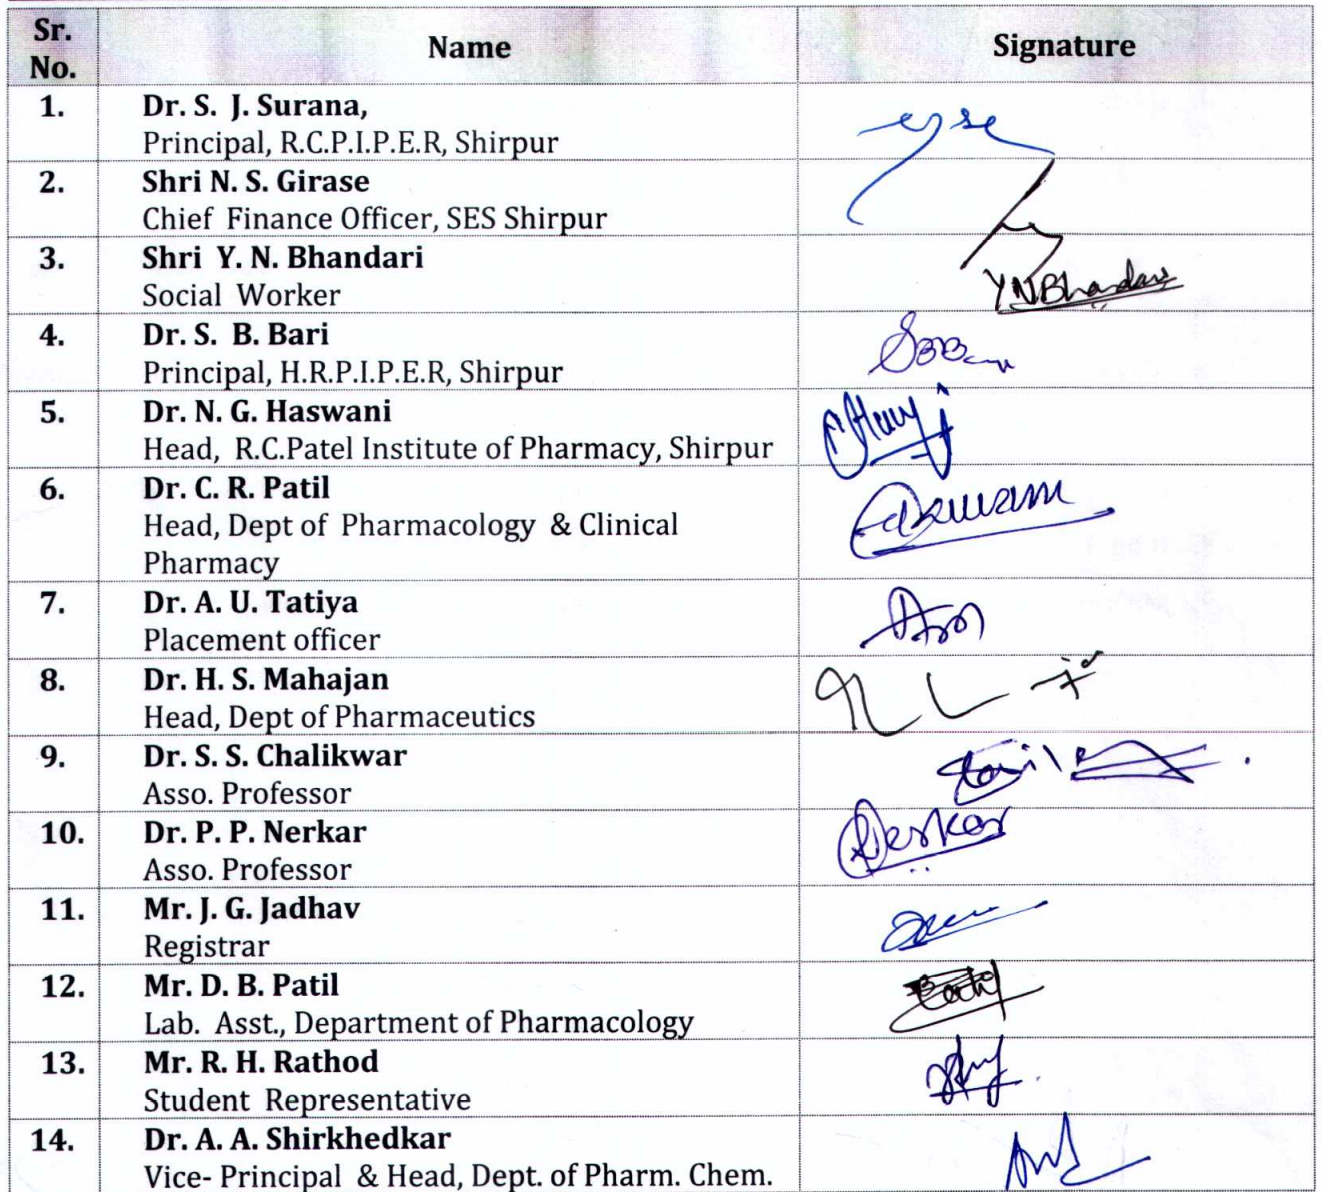 Sr. No.
Name
Signature
1.
Dr. S. J. Surana,
Principal, R.C.P.I.P.E.R, Shirpur
2.
Shri N. S. Girase
Chief Finance Officer, SES Shirpur
3.
Shri Y. N. Bhandari
Social Worker
YNBhandari
4.
Dr. S. B. Bari
Principal, H.R.P.I.P.E.R, Shirpur
5.
Dr. N. G. Haswani
Head, R.C.Patel Institute of Pharmacy, Shirpur
6.
Dr. C. R. Patil
Head, Dept of Pharmacology & Clinical
Pharmacy
7.
Dr. A. U. Tatiya
Placement officer
8.
Dr. H. S. Mahajan
Head, Dept of Pharmaceutics
9.
Dr. S. S. Chalikwar
Asso. Professor
10.
Dr. P. P. Nerkar
Asso. Professor
Nerkar
11.
Mr. J. G. Jadhav
Registrar
12.
Mr. D. B. Patil
Lab. Asst., Department of Pharmacology
13.
Mr. R. H. Rathod
Student Representative
14.
Dr. A. A. Shirkhedkar
Vice- Principal & Head, Dept. of Pharm. Chem.